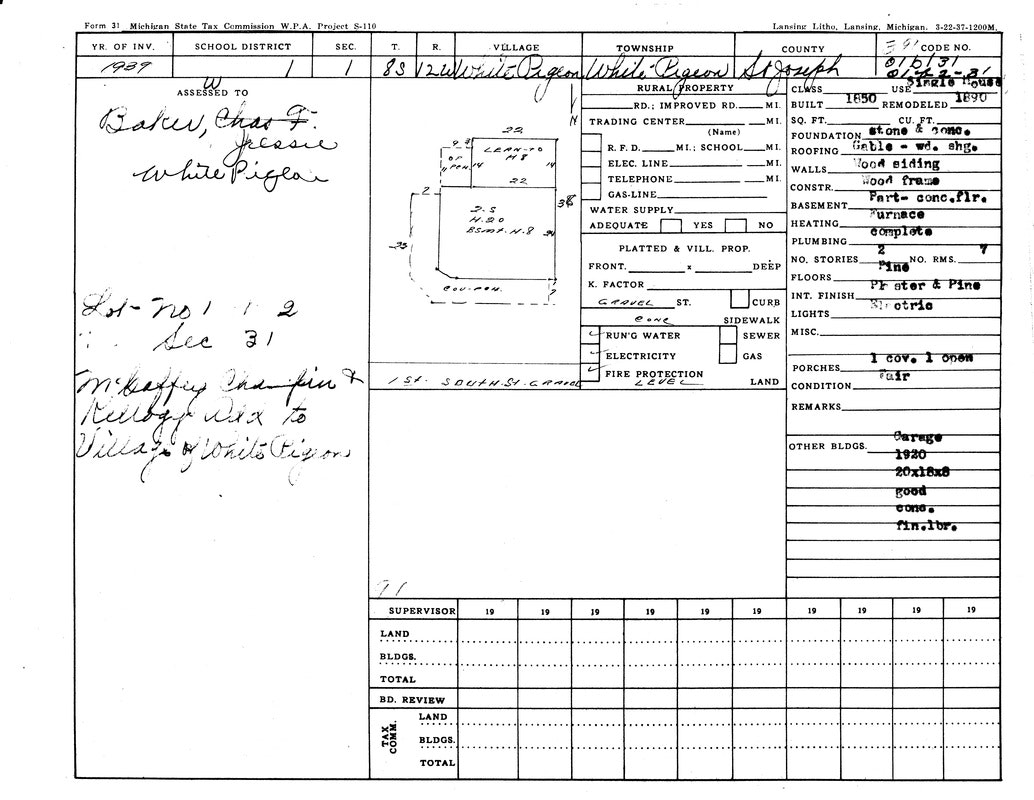 Form 31 Michigan State Tax Commission W.P.A. Project S-110
Lansing Litho, Lansing, Michigan. 3-22-37-1200M.
YR. OF INV. SCHOOL DISTRICT SEC. T. R. VILLAGE TOWNSHIP COUNTY CODE NO.
1939 1 1 8S 12W White Pigeon White Pigeon St Joseph
W
ASSESSED TO
Baker, Chas F.
Jessie
White Pigeon
Lot - No 1 1 2
Sec 31
McGaffey Champlin &
Kellogg Add to
Village of White Pigeon
22
LEAN-TO
H 8
14 14
22
2
2-S
H-20
BSMT-H-8
COV-POR.
N
1 ST. SOUTH-ST-GRAVEL
RURAL PROPERTY
RD.; IMPROVED RD. MI.
TRADING CENTER MI.
(Name)
R. F. D. MI.; SCHOOL MI.
ELEC. LINE MI.
TELEPHONE MI.
GAS-LINE
WATER SUPPLY
ADEQUATE YES NO
PLATTED & VILL. PROP.
FRONT. x DEEP
K. FACTOR
GRAVEL ST. CURB
CONC SIDEWALK
RUN'G WATER SEWER
ELECTRICITY GAS
FIRE PROTECTION
LEVEL LAND
CLASS USE Single House
BUILT 1850 REMODELED 1890
SQ. FT. CU. FT.
FOUNDATION stone & conc.
ROOFING Gable - wd. shg.
WALLS Wood siding
CONSTR. Wood frame
BASEMENT Part- conc.flr.
HEATING Furnace
PLUMBING complete
NO. STORIES 2 NO. RMS. 7
FLOORS Pine
INT. FINISH Plaster & Pine
LIGHTS Electric
MISC.
PORCHES 1 cov. 1 open
CONDITION Fair
REMARKS
OTHER BLDGS. Garage
1920
20x18x8
good
conc.
fin.lbr.
SUPERVISOR 19 19 19 19 19 19 19 19 19
LAND
BLDGS.
TOTAL
BD. REVIEW
TAX COMM.
LAND
BLDGS.
TOTAL